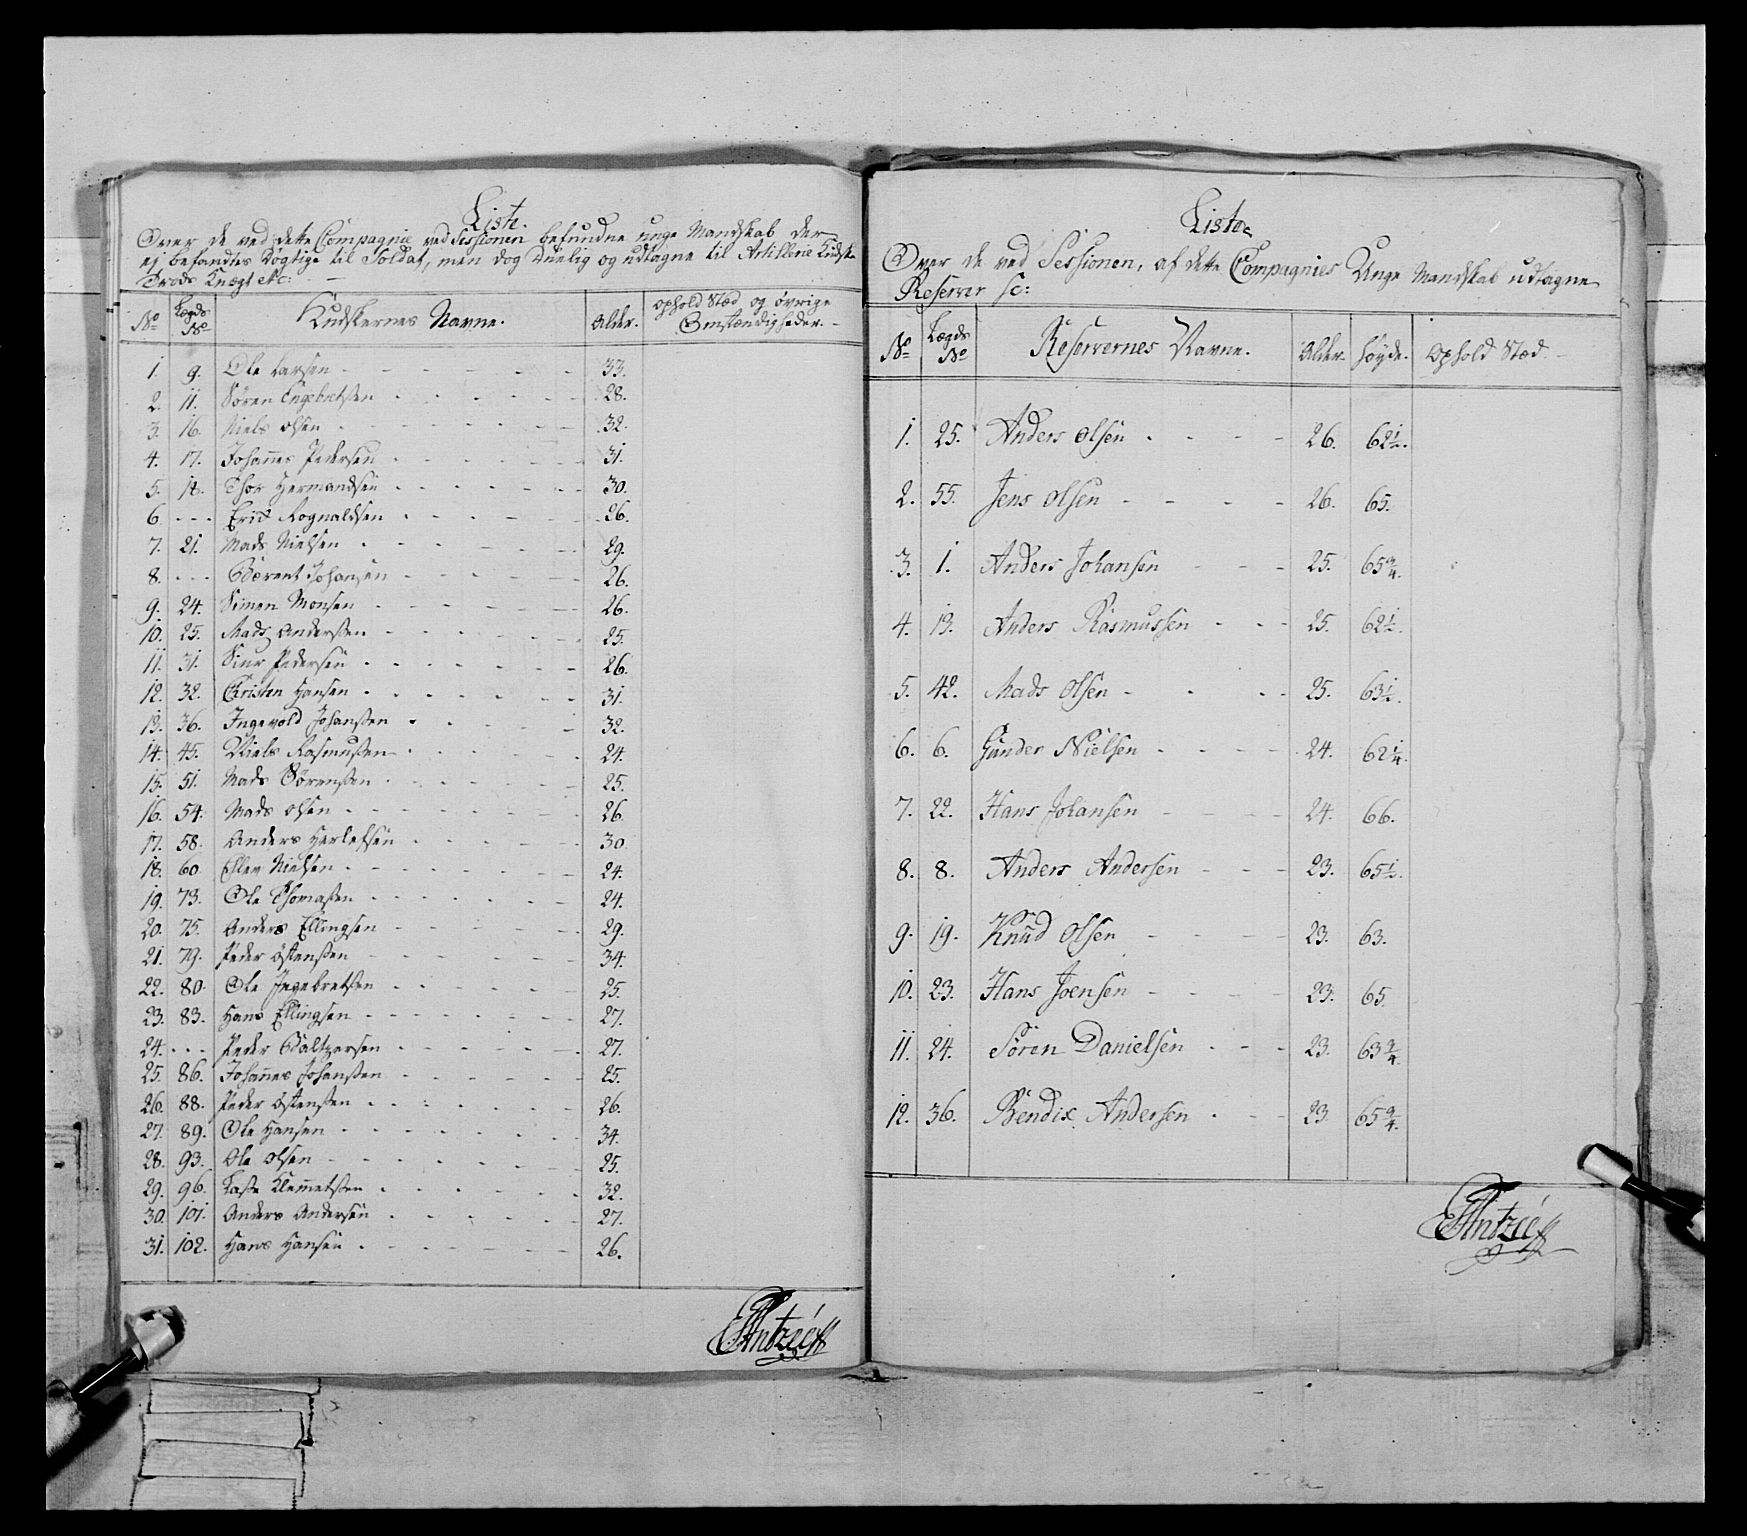 Liste.
Over de ved dette Compagnie ved Sessionen befundne unge Mandskab der
ej befandtes dögtige til Soldat, men dog duelig og udtagne til Artillerie Kudske
Trods Knægt etc:
No Lægds No Kudskernes Navne. Alder. Ophold Stæd og övrige Omstændigheder.
1. 9. Ole Larsen 33.
2. 11. Sören Engebretsen 28.
3. 16. Niels Olsen 32.
4. 17. Johannes Pedersen 31.
5. 18. Thor Hermandsen 30.
6. Erich Rognaldsen 26.
7. 21. Mads Nielsen 29.
8. Bærent Johansen 26.
9. 24. Simen Monsen 26.
10. 25. Mads Andersen 25.
11. 31. Siur Pedersen 26.
12. 32. Christen Hansen 31.
13. 36. Ingevold Johansen 32.
14. 45. Niels Rasmusen 24.
15. 51. Mads Sörensen 25.
16. 54. Mads Olsen 26.
17. 58. Anders Herlefsen 30.
18. 60. Ellev Nielsen 24.
19. 73. Ole Thomasen 24.
20. 75. Anders Ellingsen 29.
21. 79. Peder Östensen 34.
22. 80. Ole Ingebretsen 25.
23. 83. Hans Ellingsen 27.
24. Peder Baltzersen 27.
25. 86. Johannes Johansen 25.
26. 88. Peder Östensen 26.
27. 89. Ole Hansen 34.
28. 93. Ole Olsen 25.
29. 96. Lasse Klemetsen 32.
30. 101. Anders Andersen 27.
31. 102. Hans Hansen 26.
Liste
Over de ved Sessionen, af dette Compagnies Unge Mandskab udtagne
Reserver sc:
No Lægds No Reservernes Navne. Alder. Höyde. Ophold Stæd.
1. 25. Anders Olsen 26. 62½.
2. 55. Jens Olsen 26. 65.
3. 1. Anders Johansen 25. 65¾.
4. 13. Anders Rasmussen 25. 62½.
5. 42. Mads Olsen 25. 63½.
6. 6. Gunder Nielsen 24. 62¼.
7. 22. Hans Johansen 24. 66.
8. 8. Anders Andersen 23. 65½.
9. 19. Knud Olsen 23. 63.
10. 23. Hans Joensen 23. 65.
11. 24. Sören Danielsen 23. 63¾.
12. 36. Bendix Andersen 23. 65¾.